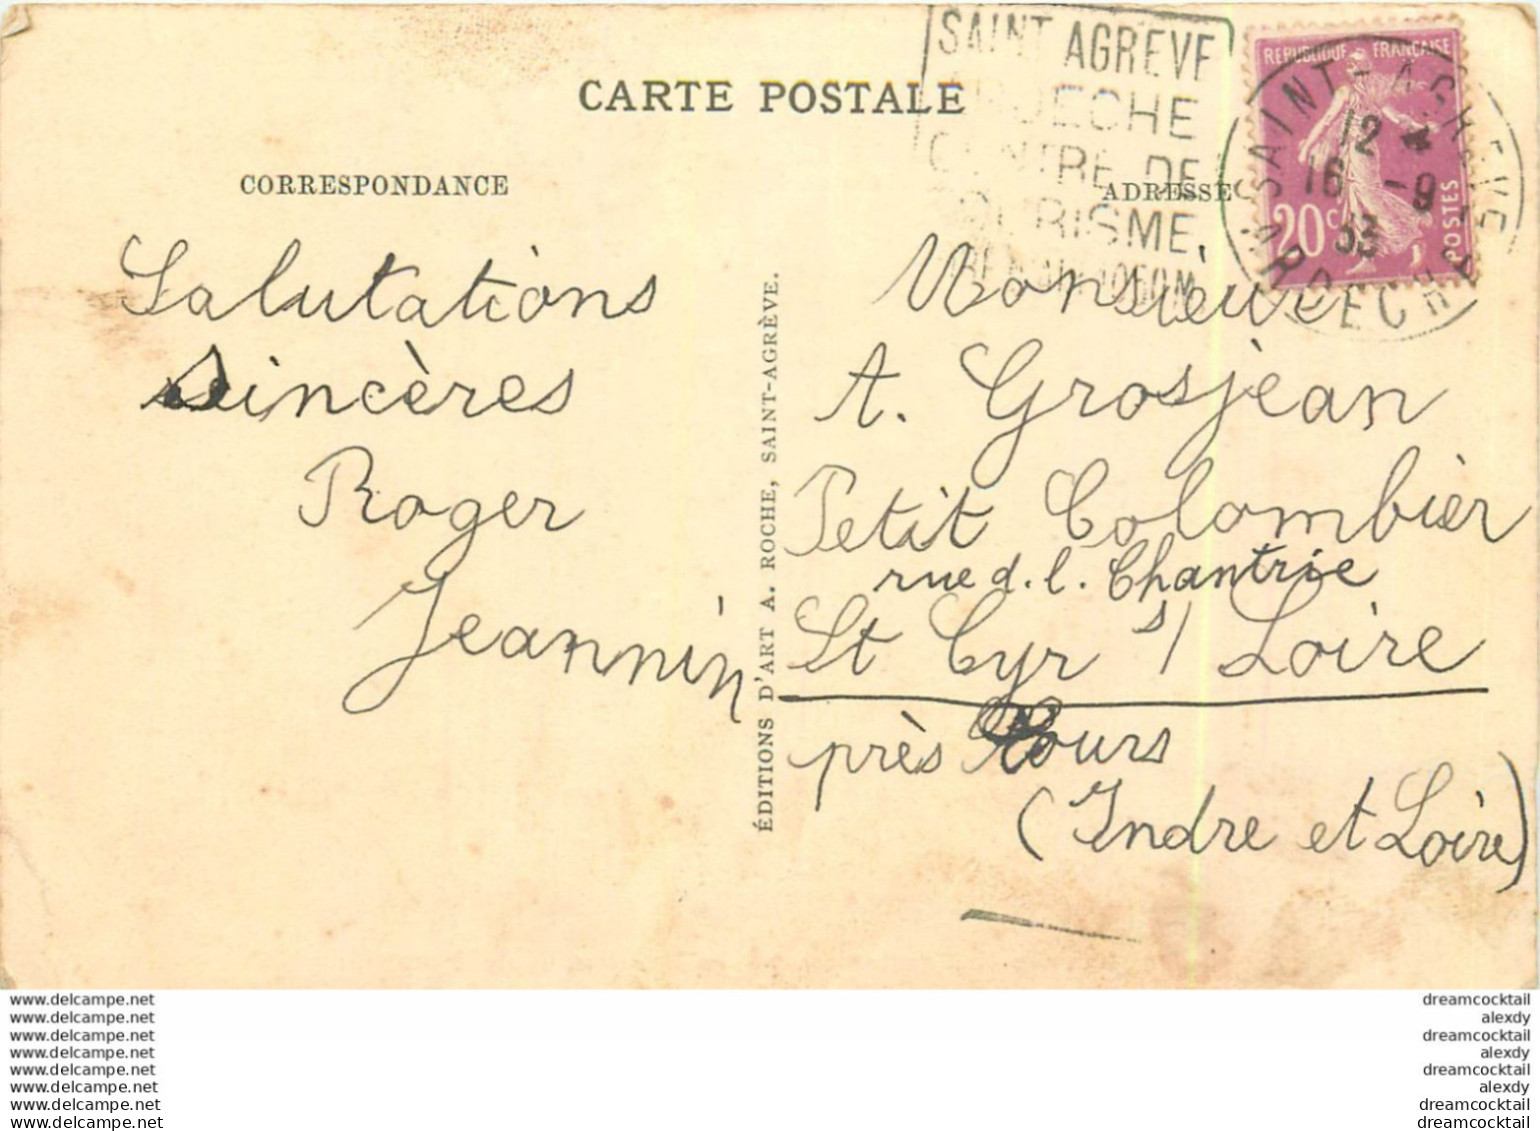 CARTE POSTALE
CORRESPONDANCE
ADRESSE
SAINT AGREVE
ARDECHE
CENTRE DE
TOURISME
1050 M
REPUBLIQUE FRANÇAISE
20c
POSTES
SAINT-AGREVE
12
16 -9
33
ARDECHE
Salutations
sincères
Roger
Jeannin
ÉDITIONS D'ART A. ROCHE, SAINT-AGRÈVE.
Monsieur
A. Grosjean
Petit Colombier
rue d. l. Chantrie
St Cyr s/ Loire
près Tours
(Indre et Loire)
www.delcampe.net
www.delcampe.net
www.delcampe.net
www.delcampe.net
www.delcampe.net
www.delcampe.net
www.delcampe.net
www.delcampe.net
dreamcocktail
alexdy
dreamcocktail
alexdy
dreamcocktail
alexdy
dreamcocktail
dreamcocktail